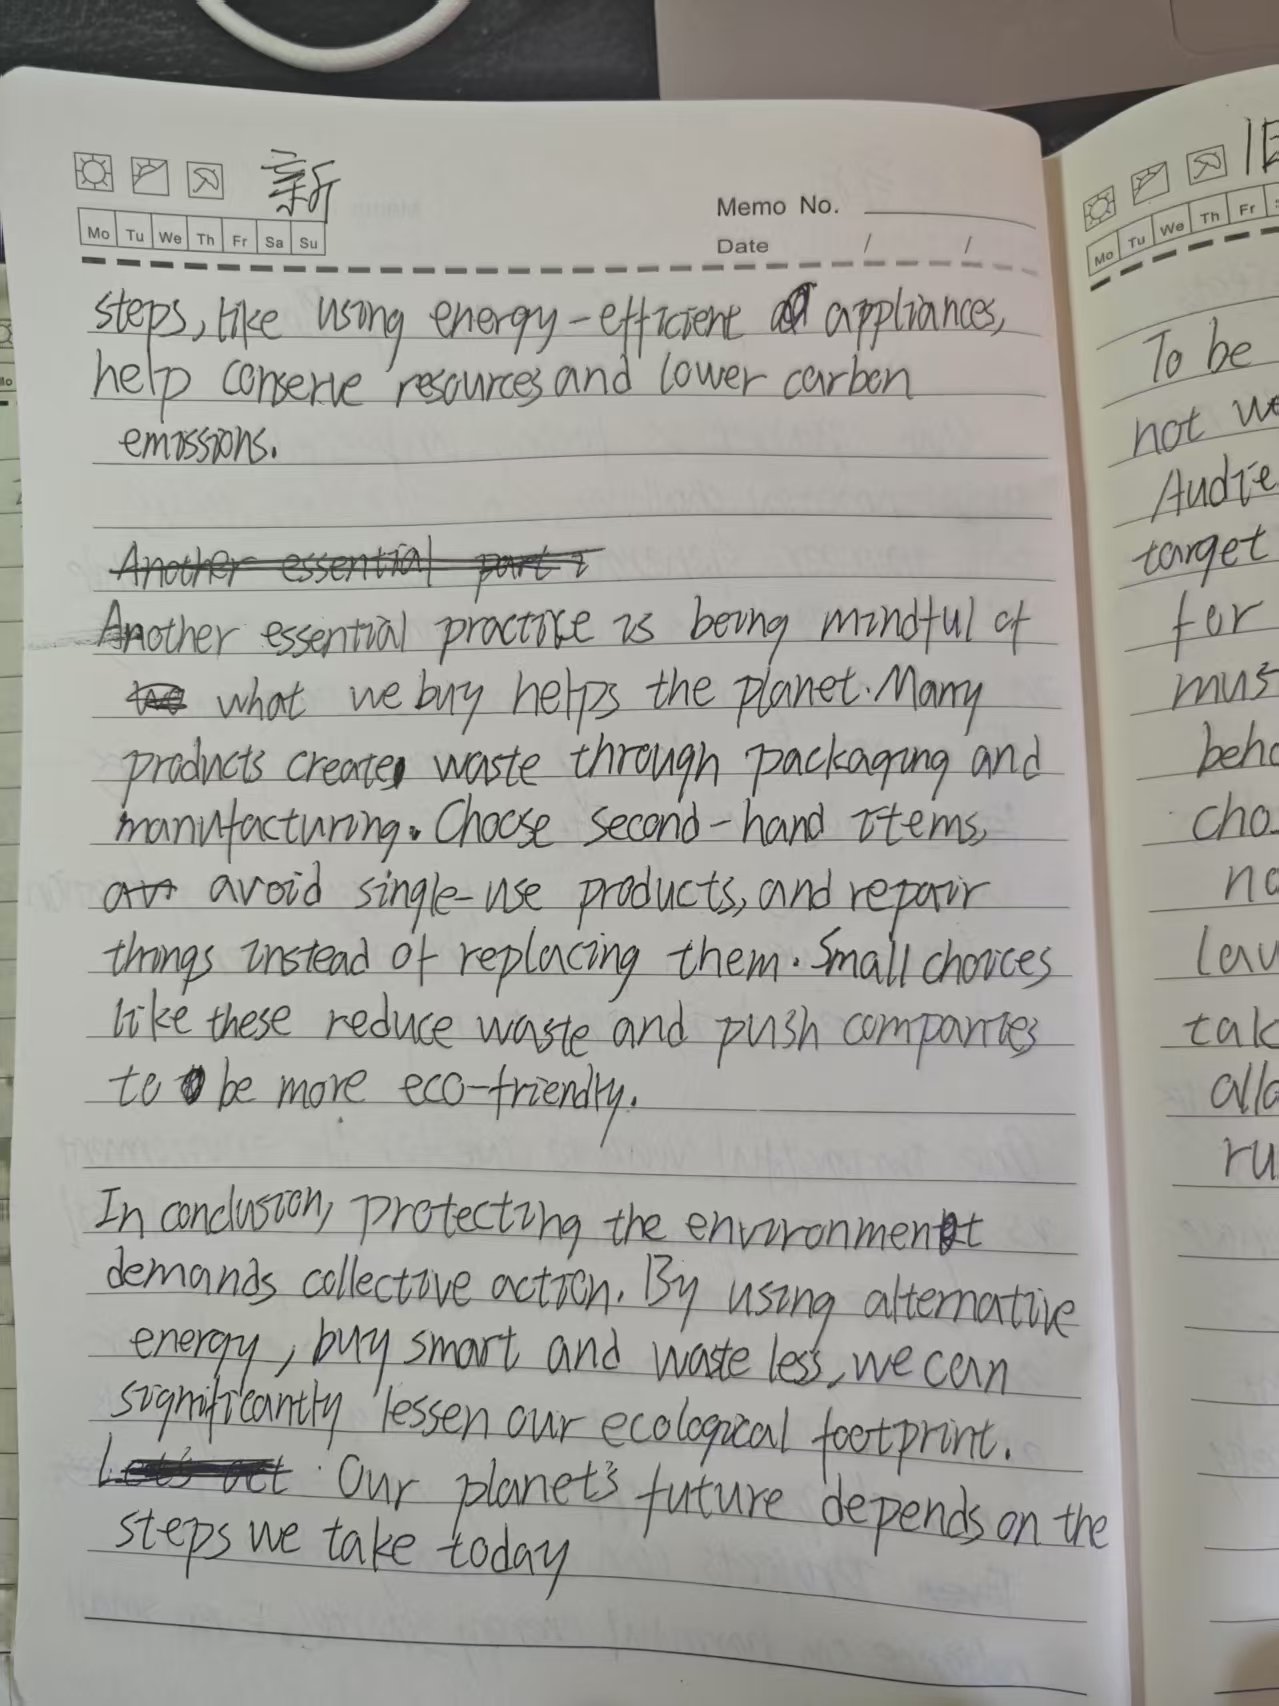 新
Memo No.
Mo Tu We Th Fr Sa Su
Date / /
steps, like using energy-efficient appliances,
help conserve resources and lower carbon
emissions.
Another essential part i
Another essential practice is being mindful of
what we buy helps the planet. Many
products create waste through packaging and
manufacturing. Choose second-hand items,
avoid single-use products, and repair
things instead of replacing them. Small choices
like these reduce waste and push companies
to be more eco-friendly.
In conclusion, protecting the environment
demands collective action. By using alternative
energy, buy smart and waste less, we can
significantly lessen our ecological footprint.
Let's act Our planet's future depends on the
steps we take today
旧
Mo Tu We Th Fr
To be
not
Audie
target
for
mus
beha
cho
no
lau
tak
allo
ru